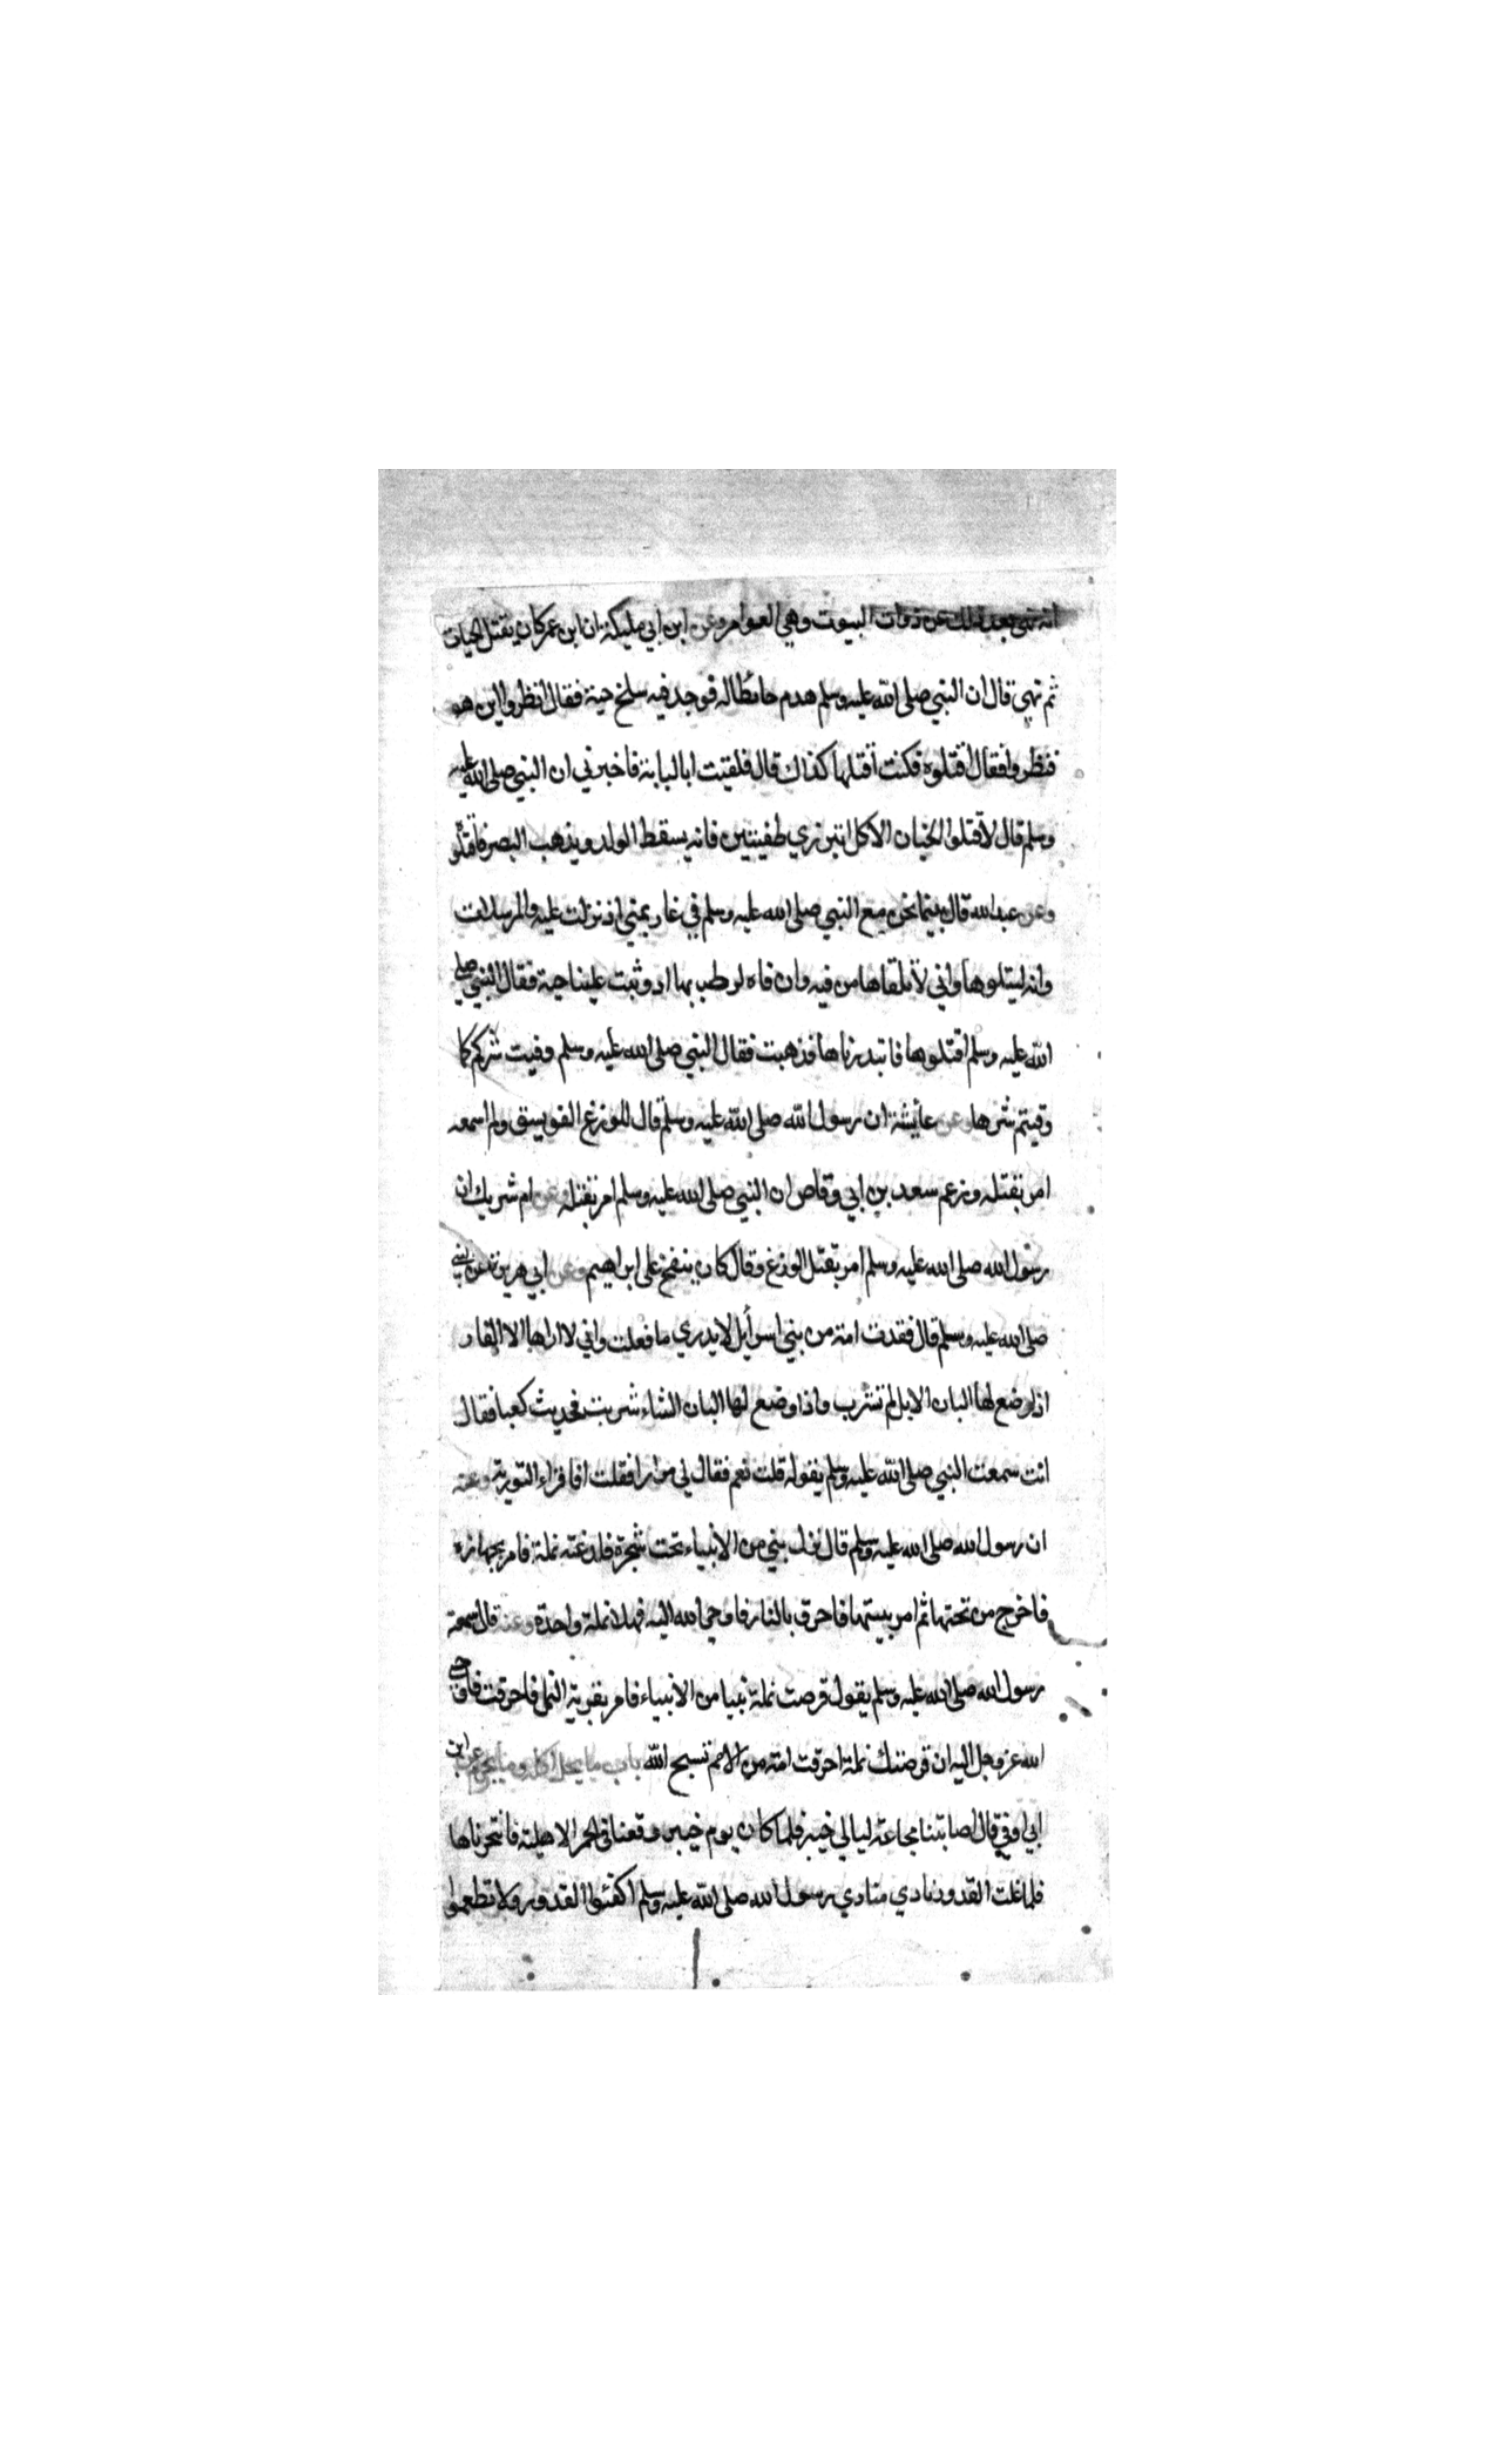 انه نهى بعد ذلك عن ذوات البيوت وهي العوامر وعن ابن ابي مليكة ان ابن عمر كان يقتل الحيات
ثم نهى قال ان النبي صلى الله عليه وسلم هدم حائطا له فوجد فيه سلخ حية فقال انظروا اين هو
فنظروا فقال اقتلوه فكنت اقتلها كذاك قال فلقيت ابا لبابة فاخبرني ان النبي صلى الله عليه
وسلم قال لا تقتلوا الجنان الا كل ابتر ذي طفيتين فانه يسقط الولد ويذهب البصر فاقتلو
وعن عبد الله قال بينما نحن مع النبي صلى الله عليه وسلم في غار بمنى اذ نزلت عليه والمرسلات
وانه ليتلوها واني لا تلقاها من فيه وان فاه لرطب بها اذ وثبت علينا حية فقال النبي صلى
الله عليه وسلم اقتلوها فابتدرناها فذهبت فقال النبي صلى الله عليه وسلم وقيت شركم كما
وقيتم شرها وعن عائشة ان رسول الله صلى الله عليه وسلم قال للوزغ الفويسق ولم اسمعه
امر بقتله وزعم سعد بن ابي وقاص ان النبي صلى الله عليه وسلم امر بقتله وعن ام شريك ان
رسول الله صلى الله عليه وسلم امر بقتل الوزغ وقال كان ينفخ على ابراهيم وعن ابي هريرة عن النبي
صلى الله عليه وسلم قال فقدت امة من بني اسرائيل لا يدري ما فعلت واني لا اراها الا الفار
اذا وضع لها البان الابل لم تشرب واذا وضع لها البان الشاء شربت فحديث كعبا فقال
انت سمعت النبي صلى الله عليه وسلم يقوله قلت نعم فقال لي مرارا فقلت افاقراء التورية وعنه
ان رسول الله صلى الله عليه وسلم قال نزل بني من الانبياء تحت شجرة فلدغته نملة فامر بجهازه
فاخرج من تحتها ثم امر ببيتها فاحرق بالنار فاوحى الله اليه فهلا نملة واحدة وعنه قال سمعت
رسول الله صلى الله عليه وسلم يقول قرصت نملة نبيا من الانبياء فامر بقرية النمل فاحرقت فاوحى
الله عز وجل اليه ان قرصتك نملة احرقت امة من الامم تسبح الله باب ما يحل اكله وما يحرم عن ابن
ابي اوفي قال اصابتنا مجاعة ليالي خيبر فلما كان يوم خيبر وقعنا في الحمر الاهلية فانتحرناها
فلما غلت القدور نادي منادي رسول الله صلى الله عليه وسلم اكفئوا القدور ولا تطعموا